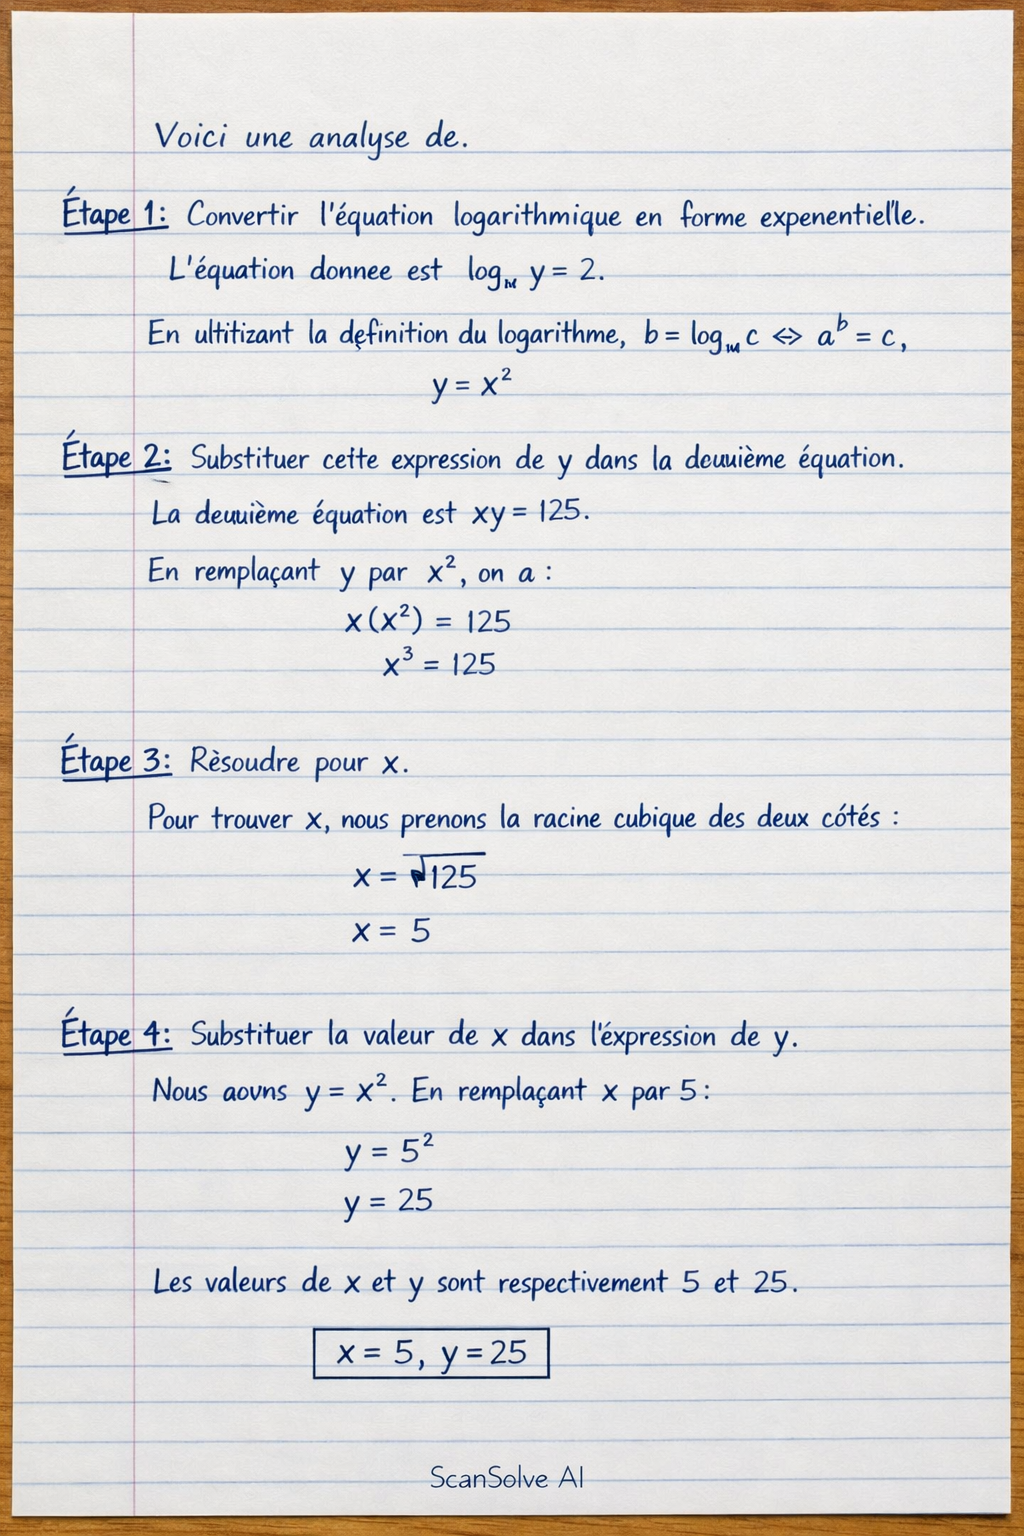 Voici une analyse de.
Étape 1: Convertir l'équation logarithmique en forme expenentielle.
L'équation donnee est log y = 2.
En ultitizant la definition du logarithme, b = log c ⇔ a^b = c,
y = x²
Étape 2: Substituer cette expression de y dans la deuuième équation.
La deuuième équation est xy = 125.
En remplaçant y par x², on a :
x(x²) = 125
x³ = 125
Étape 3: Rèsoudre pour x.
Pour trouver x, nous prenons la racine cubique des deux cótés :
x = √125
x = 5
Étape 4: Substituer la valeur de x dans l'éxpression de y.
Nous aovns y = x². En remplaçant x par 5:
y = 5²
y = 25
Les valeurs de x et y sont respectivement 5 et 25.
x = 5, y = 25
ScanSolve AI